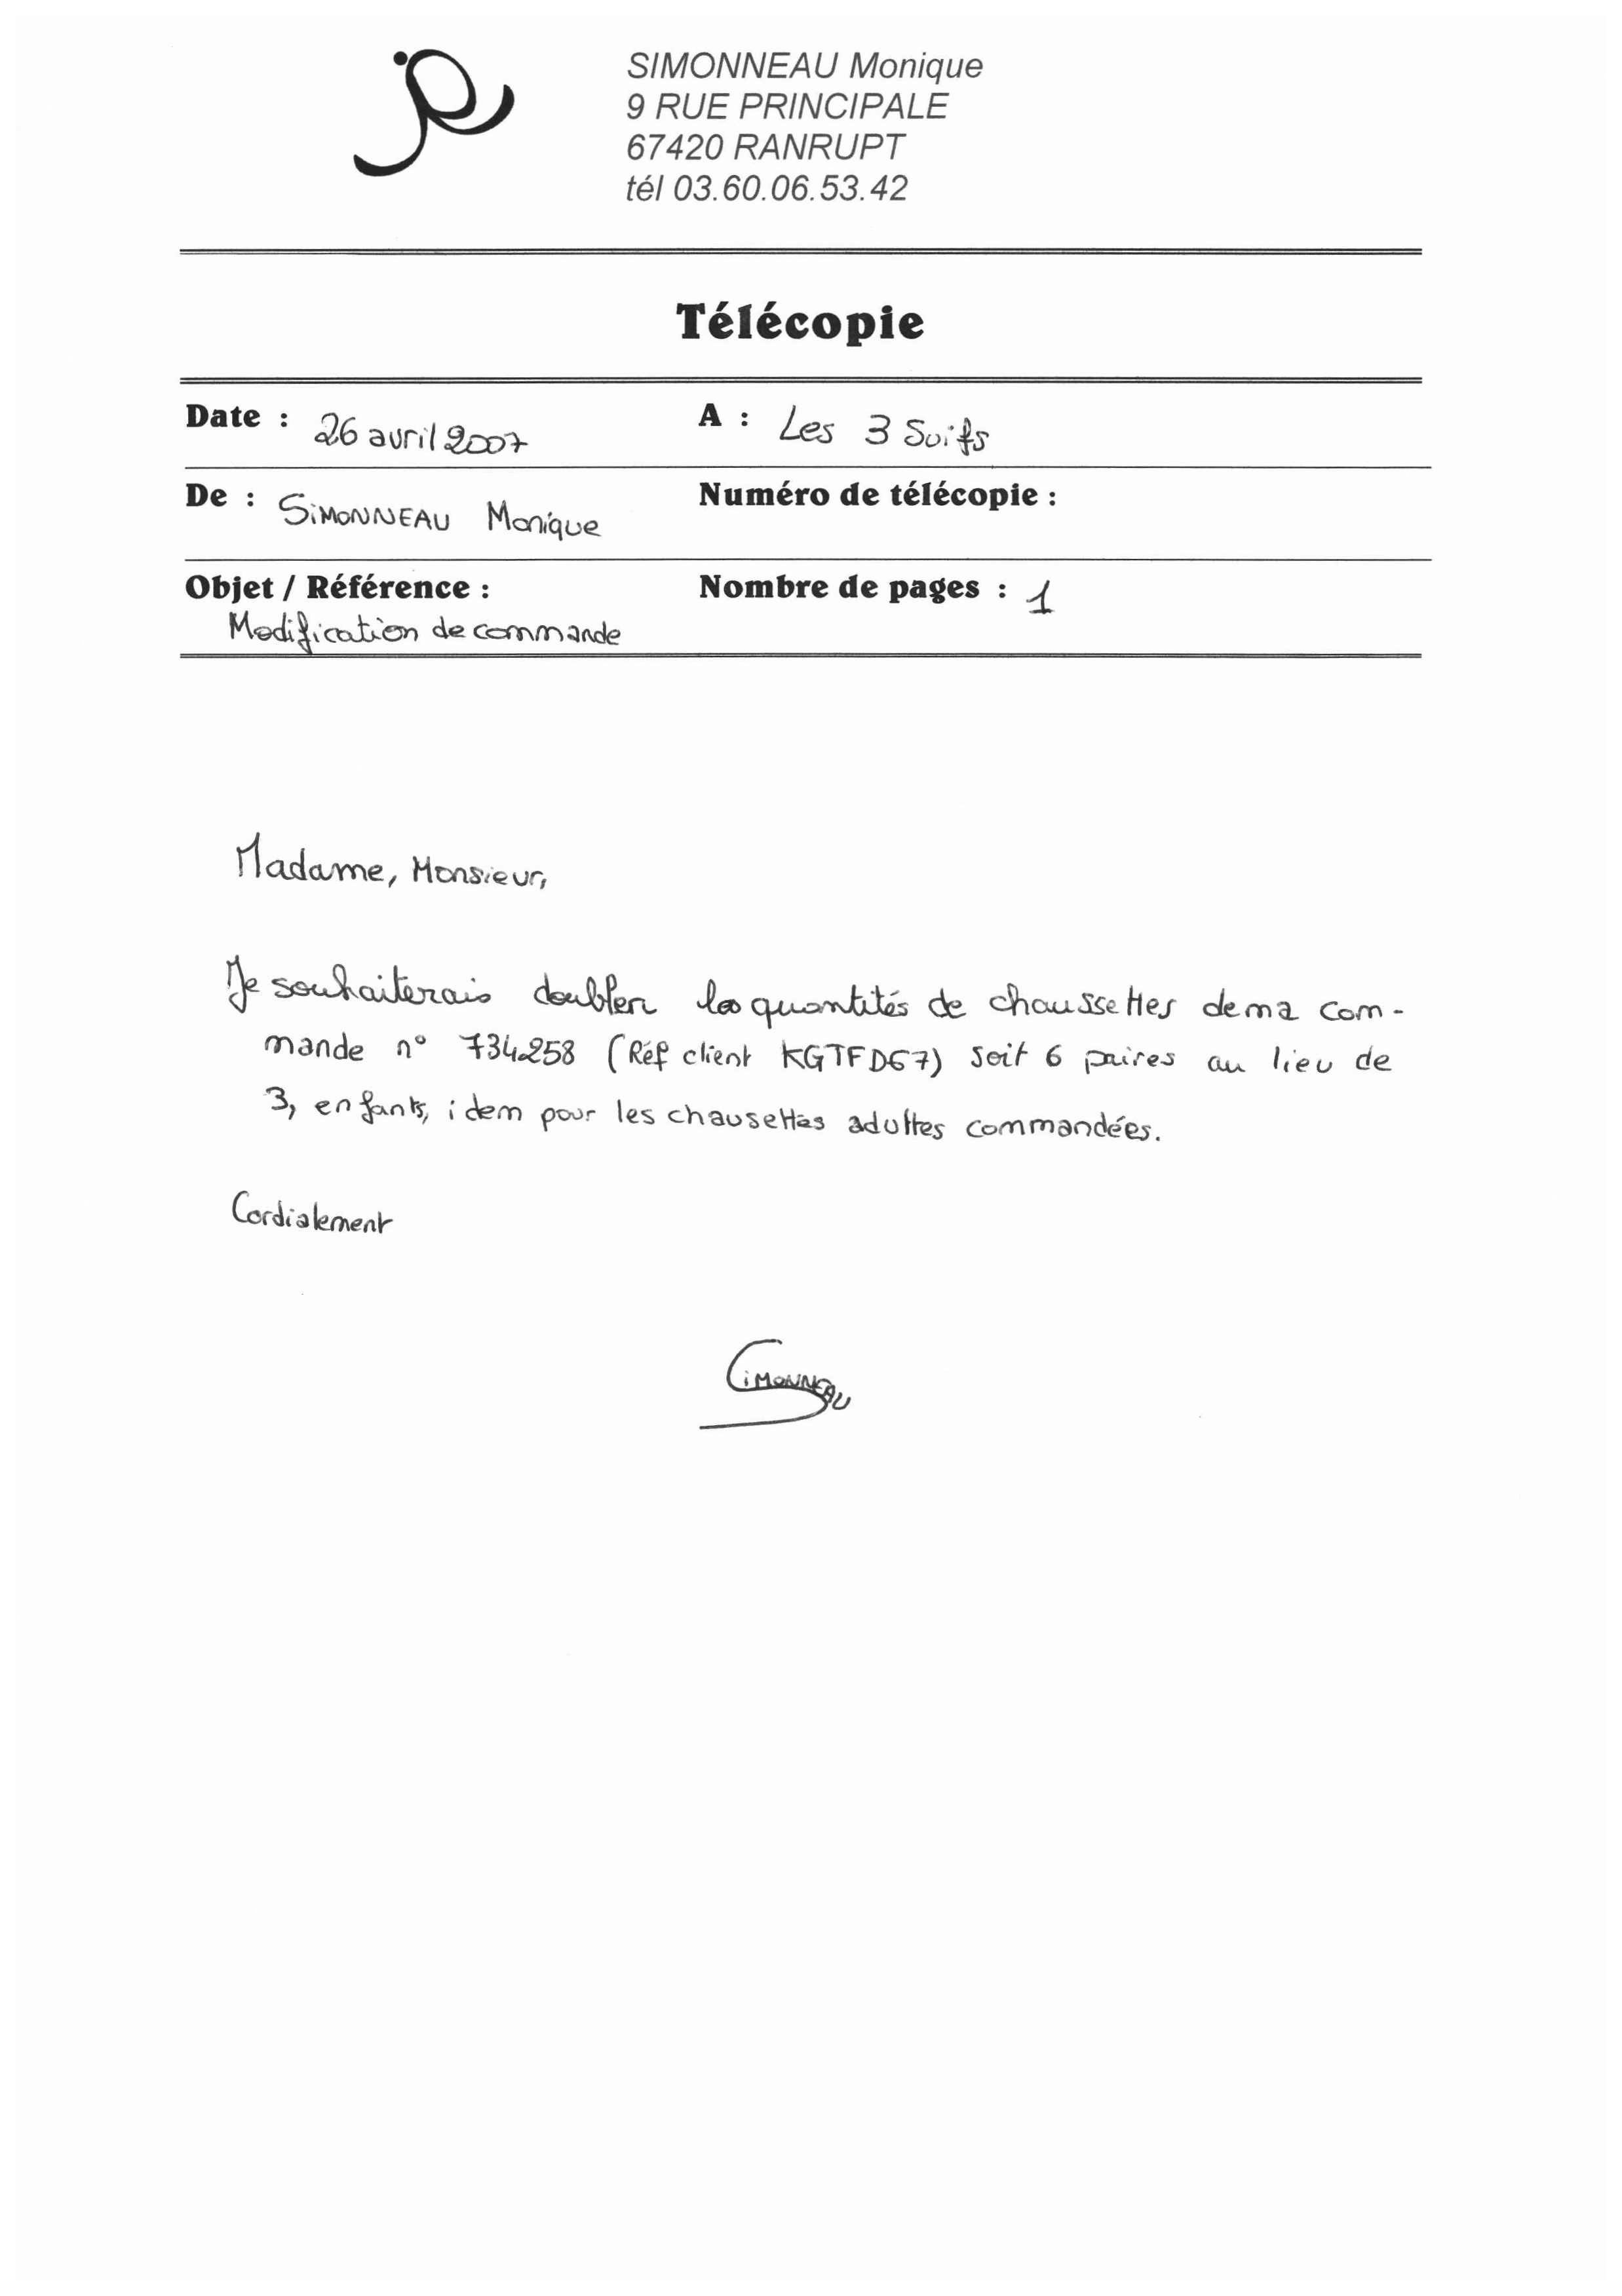 SIMONNEAU Monique
9 RUE PRINCIPALE
67420 RANRUPT
tél 03.60.06.53.42
Télécopie
Date : 26 avril 2007 A : Les 3 Suifs
De : SiMONNEAU Monique Numéro de télécopie :
Objet / Référence : Nombre de pages : 1
Modification de commande
Madame, Monsieur,
Je souhaiterais doubler les quantités de chaussettes de ma com-
mande n° 734258 (Réf client KGTFD67) soit 6 paires au lieu de
3, enfants, idem pour les chausettes adultes commandées.
Cordialement
SiMONNEAU